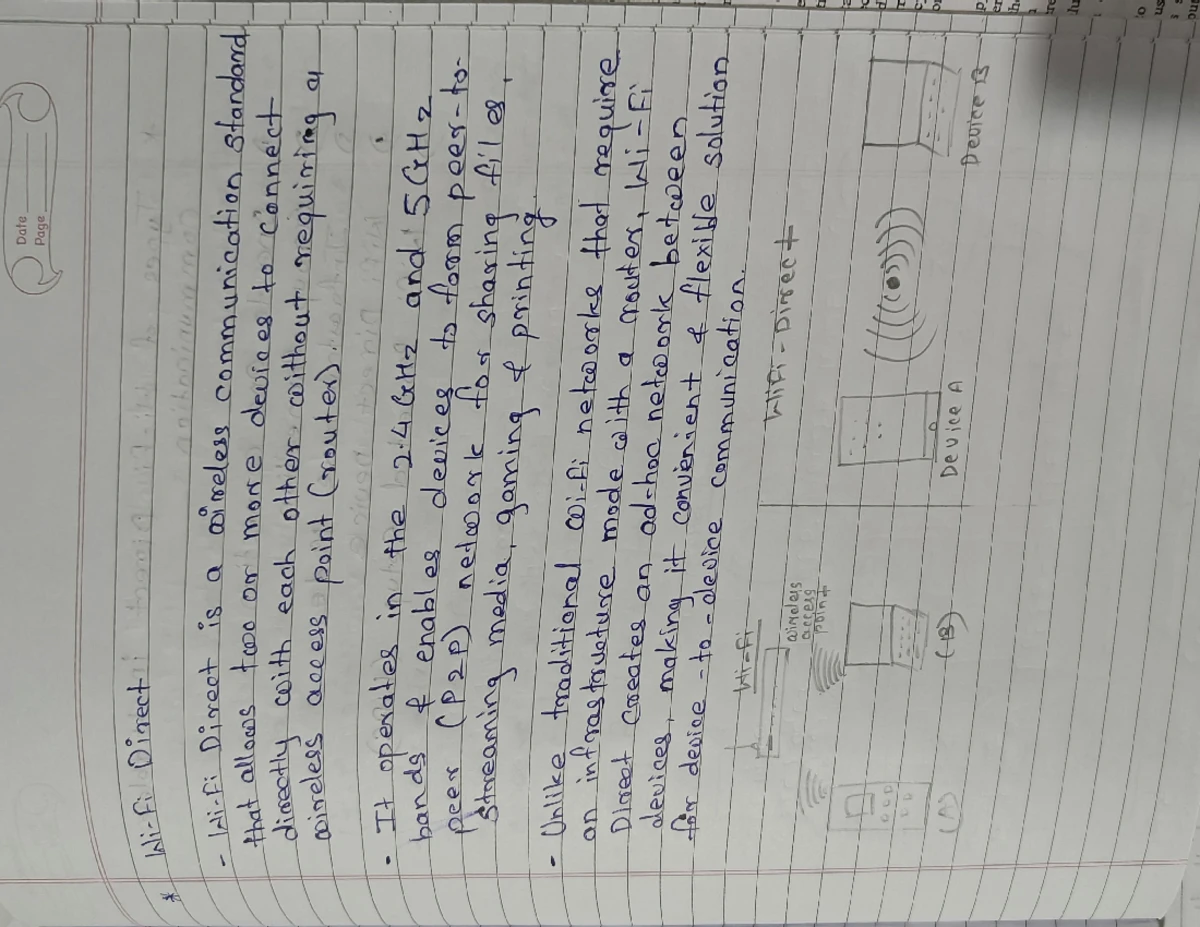 Date
Page
* Wi-Fi Direct
- Wi-Fi Direct is a wireless communication standard
that allows two or more devices to connect
directly with each other without requiring a
wireless access point (router).
• It operates in the 2.4 GHz and 5 GHz
bands & enables devices to form peer-to-
peer (P2P) network for sharing files,
streaming media, gaming & printing.
• Unlike traditional wi-fi networks that require
an infrastructure mode with a router, Wi-Fi
Direct creates an ad-hoc network between
devices, making it convenient & flexible solution
for device-to-device communication.
Wi-Fi
wireless
access
point
(A)
(B)
WiFi-Direct
Device A
Device B